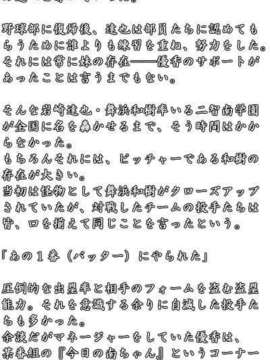 野球部に復帰後、達也は部員たちに認めても
らうために誰よりも練習を重ね、努力をした。
それには常に妹の存在――優香のサポートが
あったことは言うまでもない。
そんな岩崎達也・舞浜和樹率いる二智南学園
が全国に名を轟かせるまで、そう時間はかか
らなかった。
もちろんそれには、ピッチャーである和樹の
存在が大きい。
当初は怪物として舞浜和樹がクローズアップ
されていたが、対戦したチームの投手たちは
皆、口を揃えて同じことを言ったという。
「あの１番（バッター）にやられた」
圧倒的な出塁率と相手のフォームを盗む盗塁
能力。それを意識する余りに自滅した投手た
ちも多かった。
余談だがマネージャーをしていた優香は、
某番組の『今日の南ちゃん』というコーナー